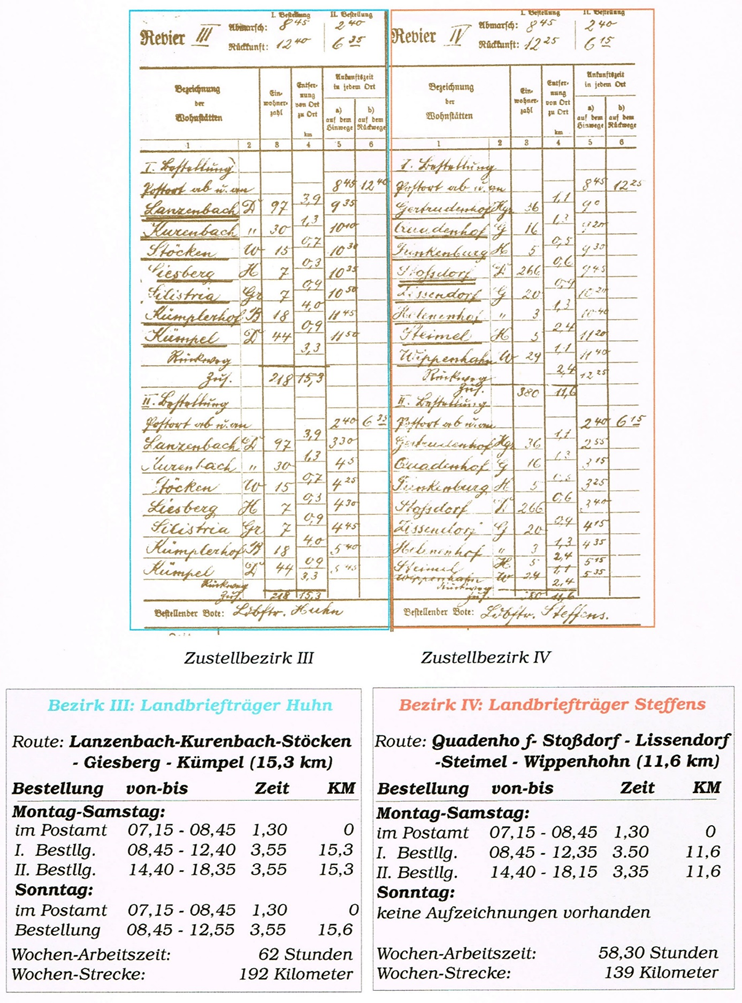 I. Bestellung II. Bestellung
Revier III Abmarsch: 8 45 2 40
Rückkunft: 12 40 6 35
Bezeichnung der Wohnstätten Einwohnerzahl Entfernung von Ort zu Ort km Ankunftszeit in jedem Ort a) auf dem Hinwege b) auf dem Rückwege
1 2 3 4 5 6
I. Bestellung
Postort ab u. an 8 45 12 40
3,9
Lanzenbach D 97 9 35
1,3
Kurenbach " 30 10 10
0,7
Stöcken W 15 10 30
0,3
Giesberg H 7 10 35
0,9
Silistria Gr 7 10 50
4,0
Kümplerhof B 18 11 45
0,9
Kümpel D 44 11 50
3,3
Rückweg
Zus. 218 15,3
II. Bestellung
Postort ab u. an 2 40 6 35
3,9
Lanzenbach D 97 3 30
1,3
Kurenbach " 30 4 5
0,7
Stöcken W 15 4 25
0,3
Giesberg H 7 4 30
0,9
Silistria Gr 7 4 45
4,0
Kümplerhof B 18 5 40
0,9
Kümpel D 44 5 45
3,3
Rückweg
Zus. 218 15,3
Bestellender Bote: Ldbftr. Huhn
I. Bestellung II. Bestellung
Revier IV Abmarsch: 8 45 2 40
Rückkunft: 12 25 6 15
Bezeichnung der Wohnstätten Einwohnerzahl Entfernung von Ort zu Ort km Ankunftszeit in jedem Ort a) auf dem Hinwege b) auf dem Rückwege
1 2 3 4 5 6
I. Bestellung
Postort ab u. an 8 45 12 25
1,1
Gertrudenhof Hgr 36 9 0
1,3
Quadenhof G 16 9 20
0,5
Funkenburg H 5 9 33
0,6
Stoßdorf D 266 9 45
0,4
Zissendorf G 20 10 20
1,3
Helenenhof " 3 10 40
2,4
Steimel H 5 11 20
1,1
Wippenhahn W 29 11 40
2,4
Rückweg 12 25
Zus. 380 11,6
II. Bestellung
Postort ab u. an 2 40 6 15
1,1
Gertrudenhof Hgr 36 2 55
1,3
Quadenhof G 16 3 15
Funkenburg H 5 3 25
0,6
Stoßdorf D 266 3 40
0,4
Zissendorf G 20 4 15
1,3
Helenenhof " 3 4 35
2,4
Steimel H 5 5 15
Wippenhahn W 29 5 35
2,4
Rückweg
Zus. 11,6
Bestellender Bote: Ldbftr. Steffens.
Zustellbezirk III Zustellbezirk IV
Bezirk III: Landbriefträger Huhn
Route: Lanzenbach-Kurenbach-Stöcken
- Giesberg - Kümpel (15,3 km)
Bestellung von-bis Zeit KM
Montag-Samstag:
im Postamt 07,15 - 08,45 1,30 0
I. Bestllg. 08,45 - 12,40 3,55 15,3
II. Bestllg. 14,40 - 18,35 3,55 15,3
Sonntag:
im Postamt 07,15 - 08,45 1,30 0
Bestellung 08,45 - 12,55 3,55 15,6
Wochen-Arbeitszeit: 62 Stunden
Wochen-Strecke: 192 Kilometer
Bezirk IV: Landbriefträger Steffens
Route: Quadenho f- Stoßdorf - Lissendorf
-Steimel - Wippenhohn (11,6 km)
Bestellung von-bis Zeit KM
Montag-Samstag:
im Postamt 07,15 - 08,45 1,30 0
I. Bestllg. 08,45 - 12,35 3.50 11,6
II. Bestllg. 14,40 - 18,15 3,35 11,6
Sonntag:
keine Aufzeichnungen vorhanden
Wochen-Arbeitszeit: 58,30 Stunden
Wochen-Strecke: 139 Kilometer